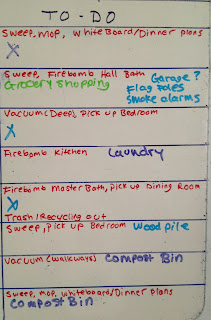 TO-DO
Sweep, Mop, Whiteboard/Dinner plans
X
Sweep, Firebomb Hall Bath Garage?
Grocery Shopping Flag Poles
Smoke alarms
Vacuum (Deep), Pick up Bedroom
X
Firebomb Kitchen Laundry
Firebomb Master Bath, Pick up Dining Room
X
Trash/Recycling out
Sweep, Pick up Bedroom Wood pile
Vacuum (Walkways) Compost Bin
Sweep, Mop, Whiteboard/Dinner plans
Compost Bin